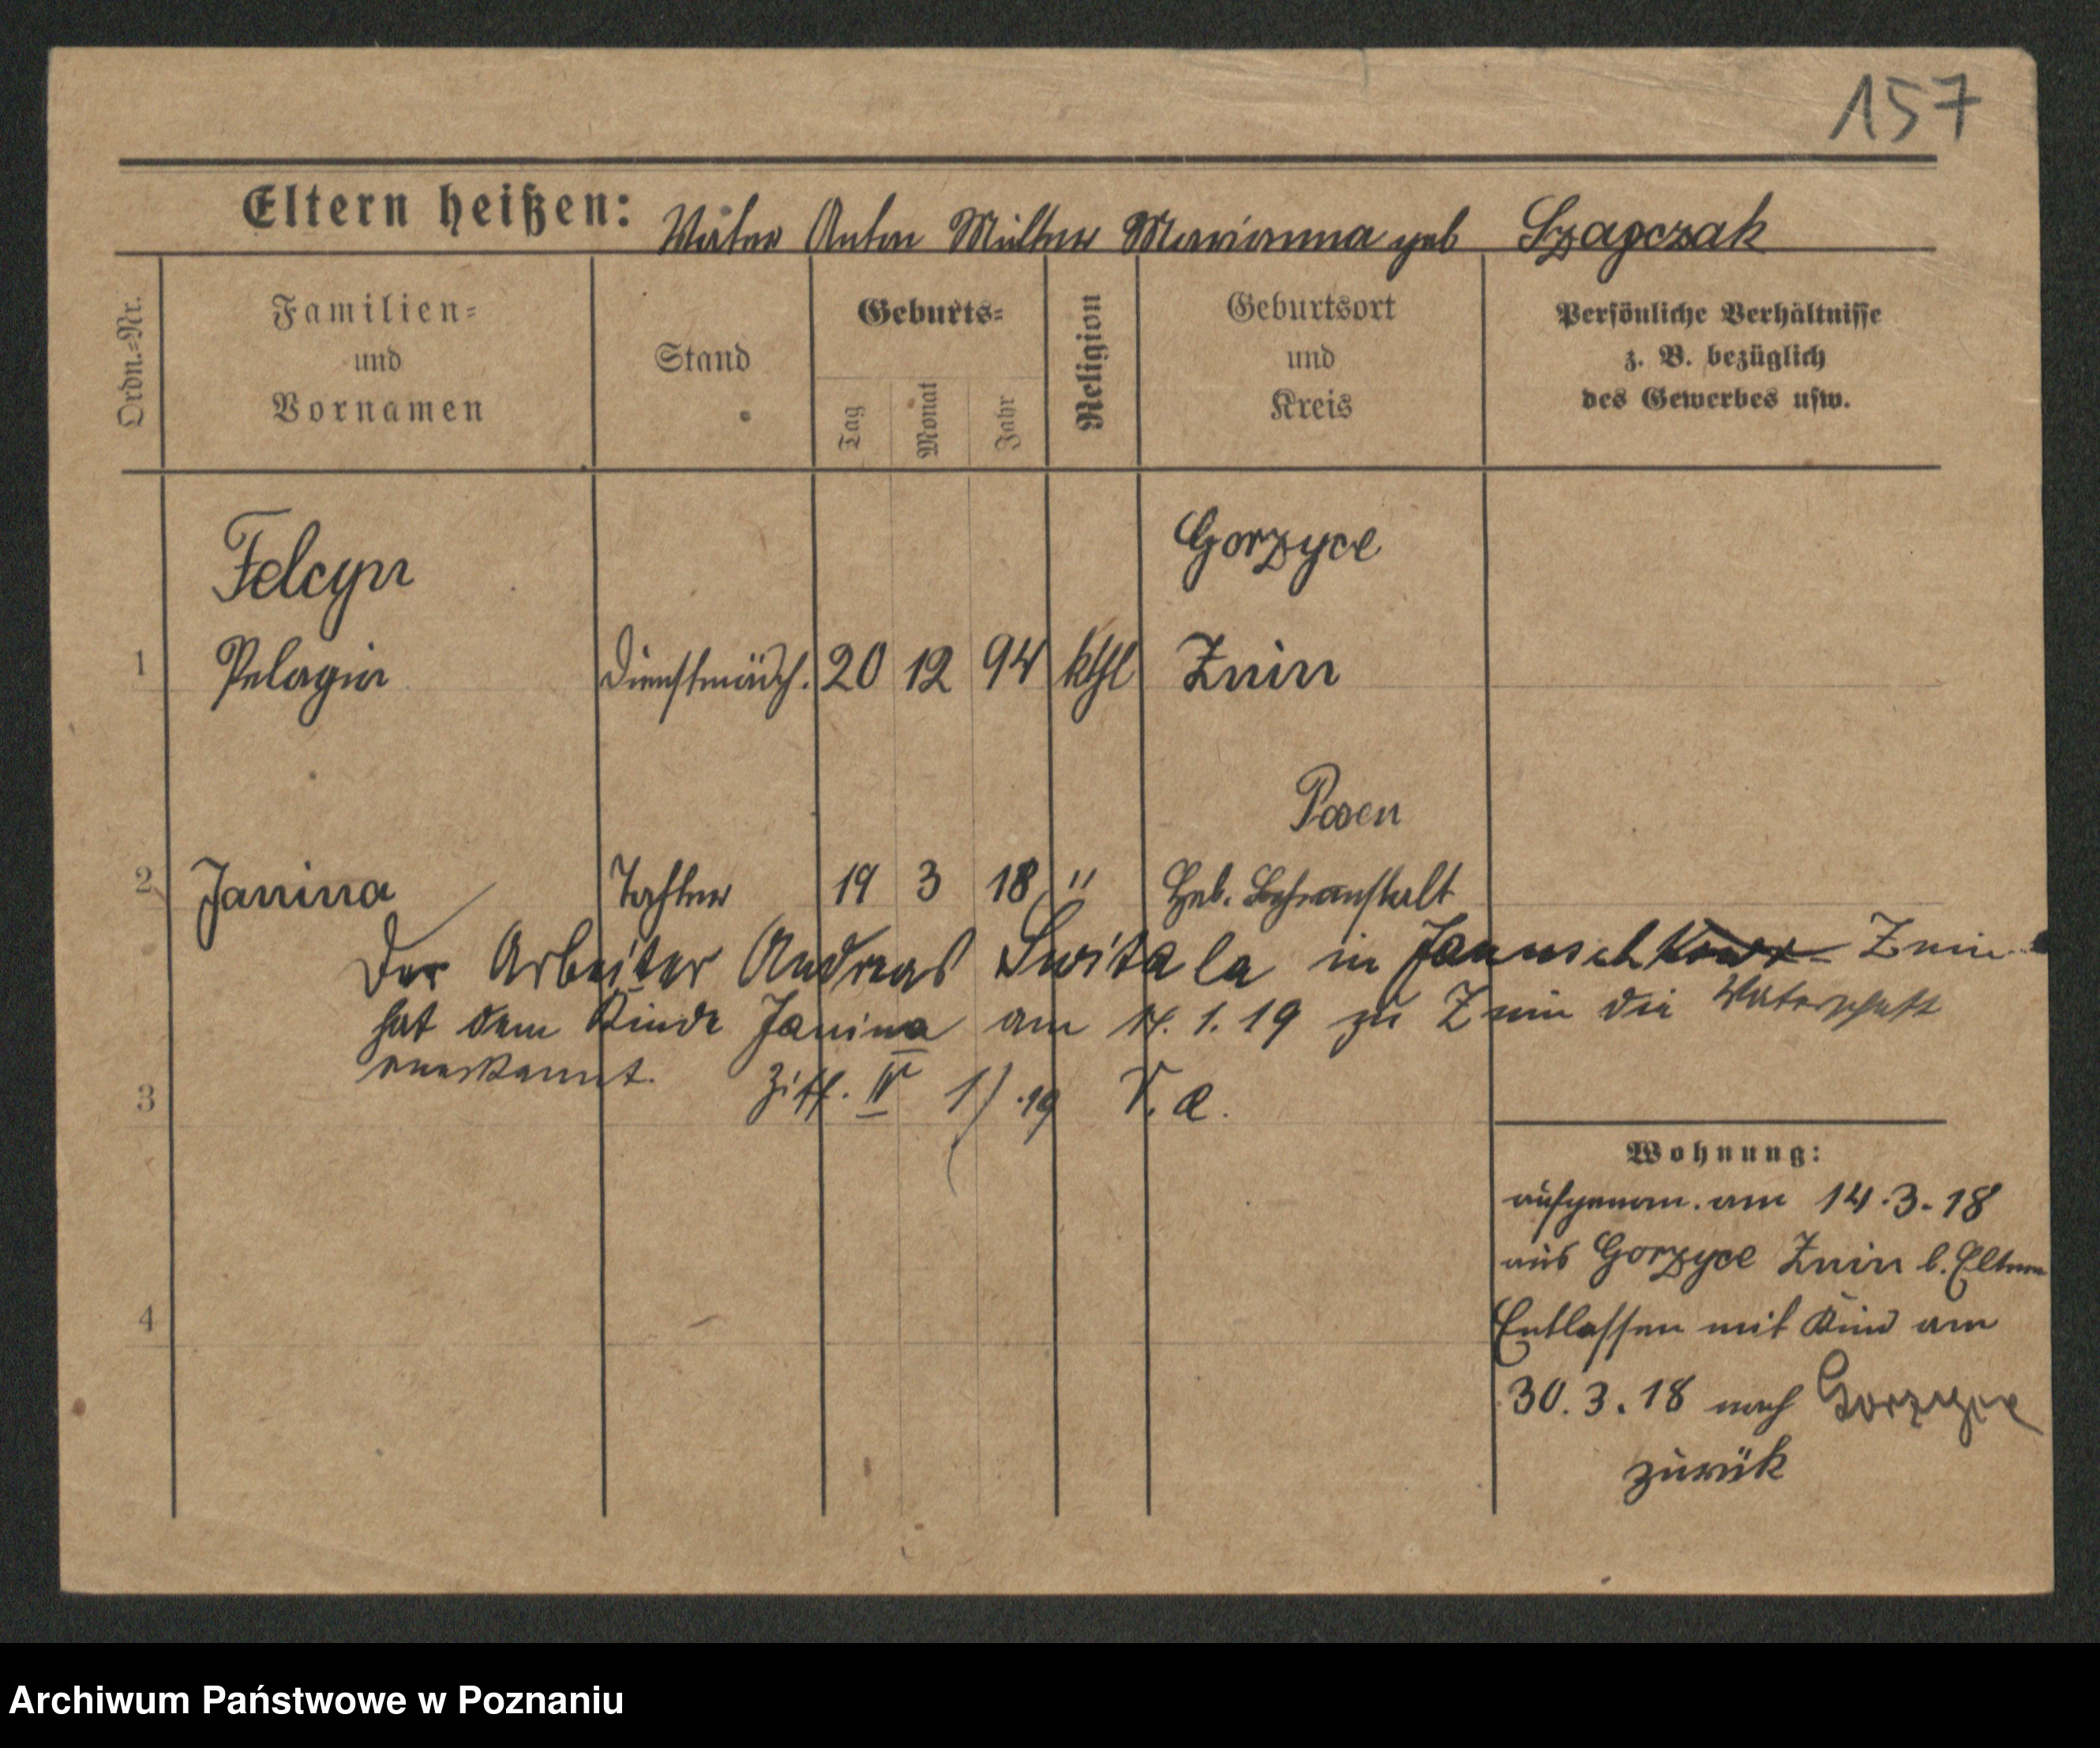 157
Eltern heißen: Vater Anton Mutter Marianna geb Szapczak
Ordn.=Nr.
Familien=
und
Vornamen
Stand
Geburts=
Tag
Monat
Jahr
Religion
Geburtsort
und
Kreis
Persönliche Verhältnisse
z. B. bezüglich
des Gewerbes usw.
Felcyn
Gorzyce
1 Pelagia Dienstmädch. 20 12 94 kthl Znin
Posen
2 Janina Tochter 19 3 18 " Heb. Lehranstalt
Der Arbeiter Andreas Switala in Znin
hat dem Kinde Janina am 14. 1. 19 zu Znin die Vaterschaft
anerkannt. Ziff. IV 1/.19 V. a.
3
Wohnung:
aufgenom. am 14.3.18
aus Gorzyce Znin b. Eltern
4
Entlassen mit Kind am
30.3.18 nach Gorzyce
zurük
Archiwum Państwowe w Poznaniu